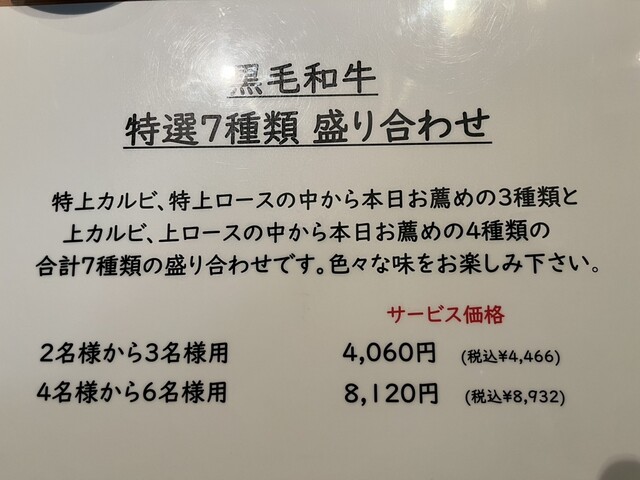 黒毛和牛
特選7種類 盛り合わせ
特上カルビ、特上ロースの中から本日お薦めの3種類と
上カルビ、上ロースの中から本日お薦めの4種類の
合計7種類の盛り合わせです。色々な味をお楽しみ下さい。
サービス価格
2名様から3名様用 4,060円 (税込¥4,466)
4名様から6名様用 8,120円 (税込¥8,932)